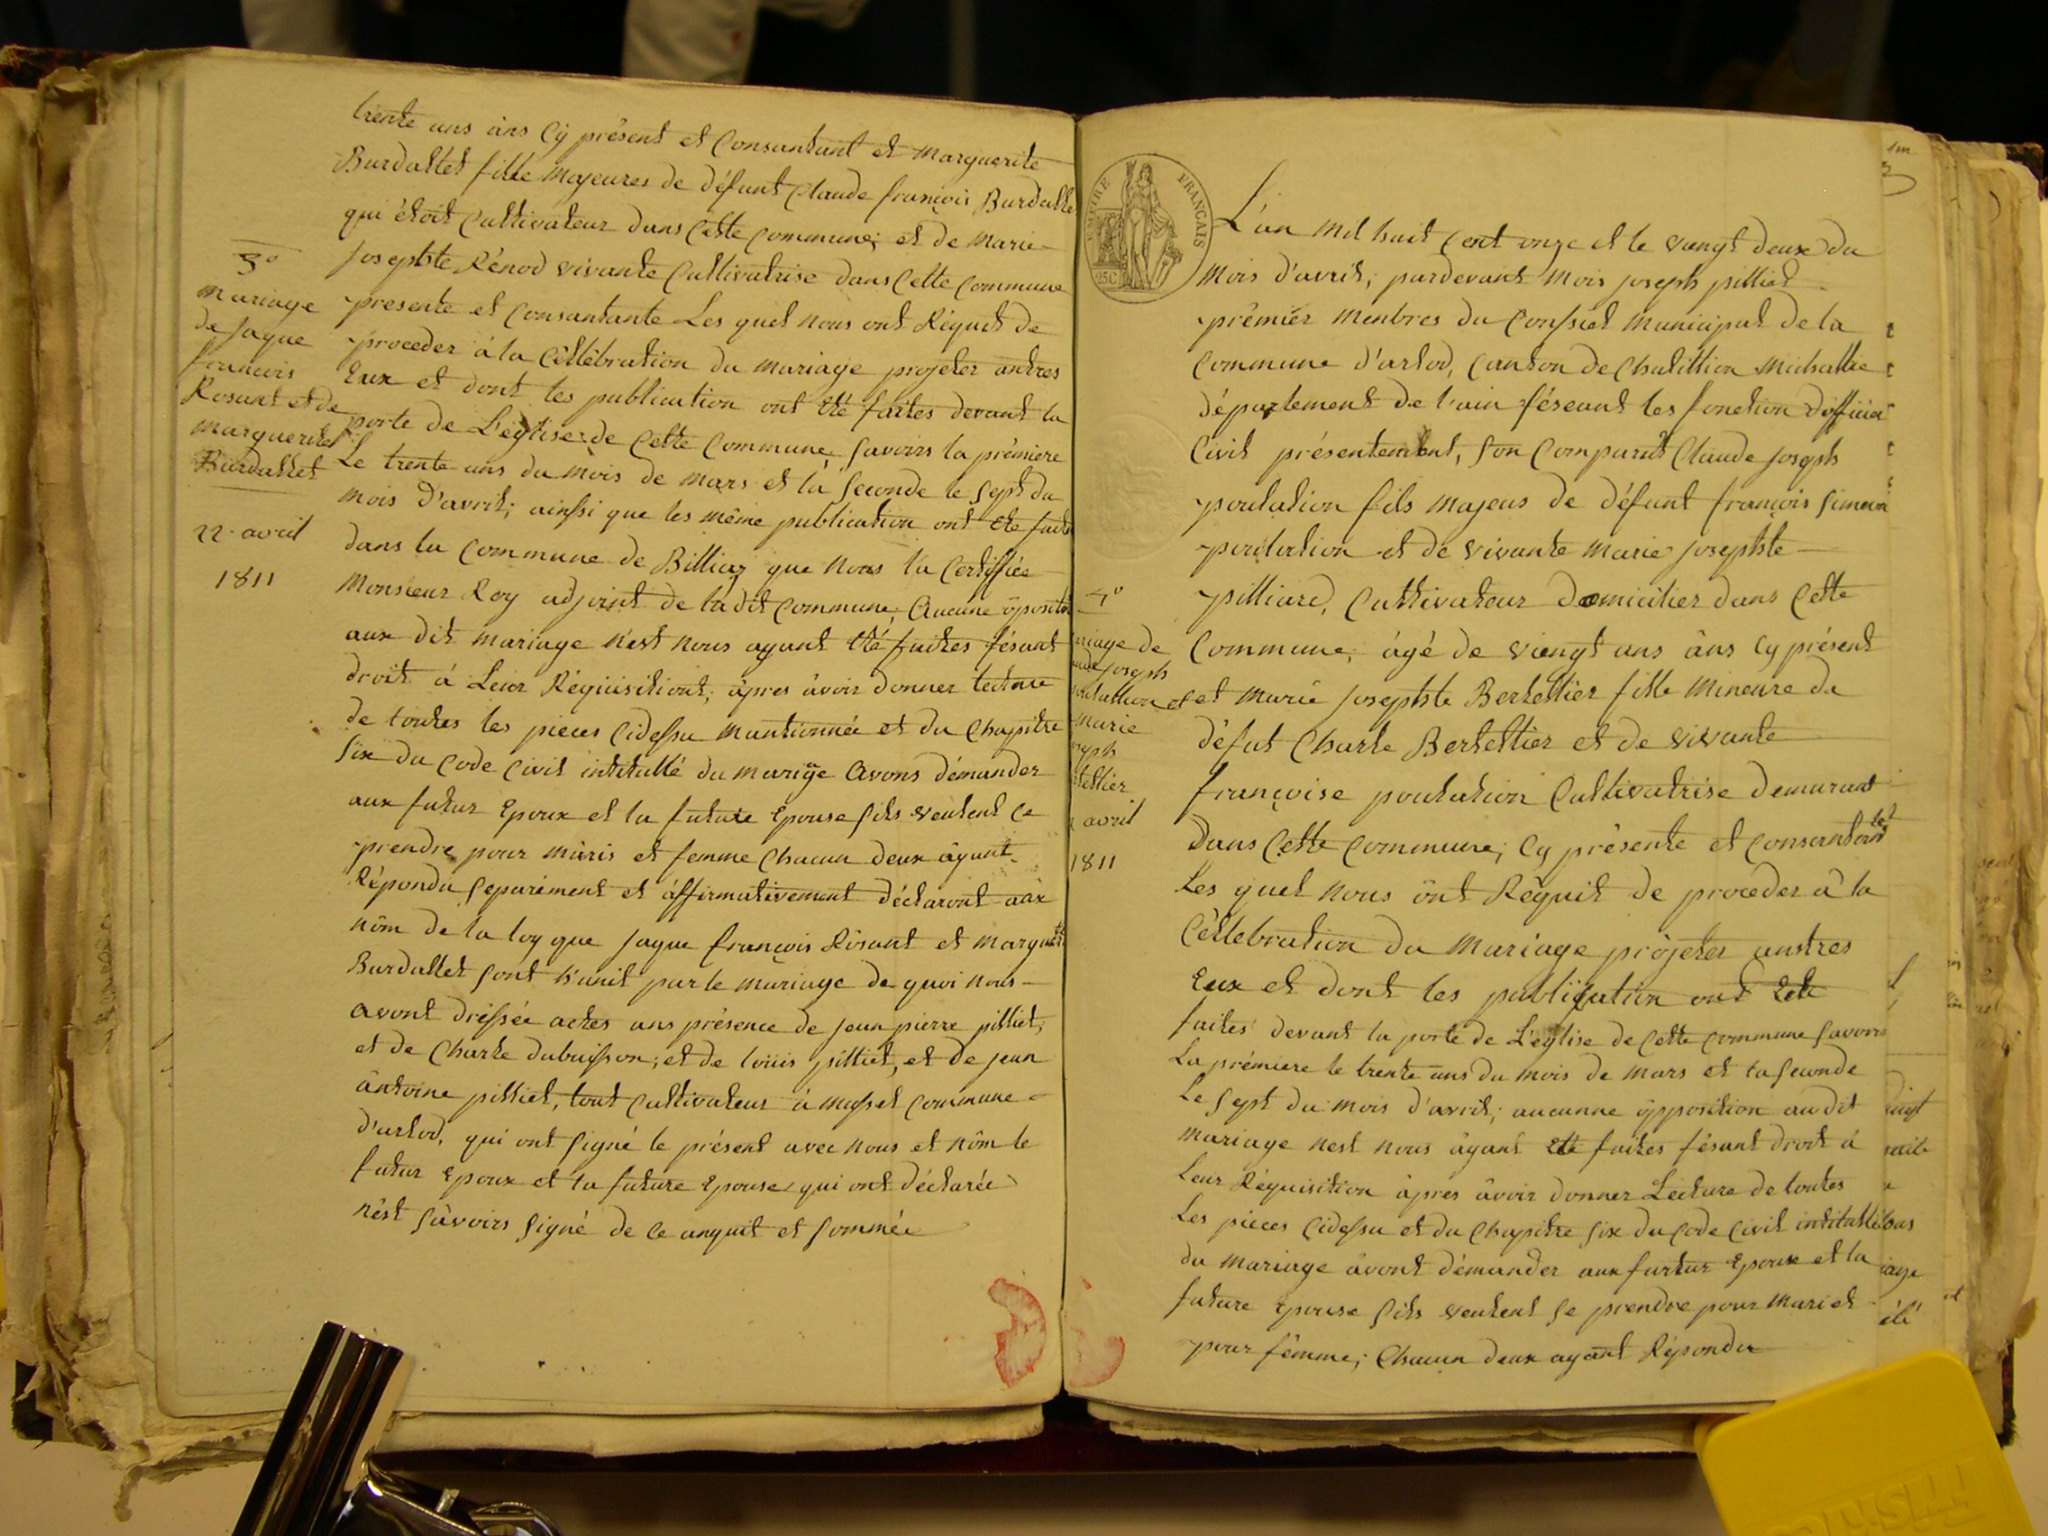 trente ans âns Cÿ présent et Consantant et Marguerite
Burdallet fille Majeures de défunt Claude françois Burdalle
qui êtoit Cultivateur dans Cette Commune; et de Marie
Josephte Rénod vivante Cultivatrise dans Cette Commune
présente et Consantante Les quel nous ont Réquit de
proceder à la Cêllébration du mariage projeter antres
Eux et dont les publication ont Eté faites devant la
porte de L'église de Cette Commune, Savoirs la prémiere
Le trente uns du mois de Mars et la Seconde le Sept du
mois D'avril; ainssi que les même publication ont Eté faite
dans la Commune de Billiaz que nous la Certiffiée
Monsieur Roy adjoint de la dit Commune; Aucune ôpositio
aux dit mariage n'est nous ayant Eté faites fésant
droit à Leur Réquisitiont; âpres âvoir donner lecture
de toutes les pieces Cidessu mantionnée et du Chapitre
Six du Code Civil intitullé du mariage Avons démander
aux futur Epoux et la future Epouse Sils veulent Ce
prendre pour mâris et femme Chacun deux âyant
Répondu Séparément et âffirmativement déclaront aux
nôm de la loy que Jaque françois Rosant et Marguerite
Burdallet Sont k'unit par le mariage de quoi nous
avont dréssée actes ans présence de Jean pierre pilliet;
et de Charle dubuisson; et de loüis pilliet, et de Jean
ântoine pilliet, tout Cultivateur à Musset Commune
d'arlod, qui ont Signé le présent avec nous et nôm le
futur Epoux et la future Epouse qui ont déclarée
n'êst Sâvoirs Signé de Ce anquit et Sommée
3°
Mariage
de Jaque
francois
Rosant et de
Marguerite
Burdallet
22 avril
1811
EMPIRE FRANÇAIS
25C
L'ân Mil huit Cent onze et le vingt deux du
Mois d'avril; pardevant Mois Joseph pilliet
prêmiér Menbres du Conssiel Municipal de la
Commune d'arlod, Canton de Chatillion Michallie
département de l'ain féseant les fonction d'officier
Civil présentement, Son Comparût Claude Joseph
poulation fils Majeus de défunt françois Simeon
poulation et de vivante Marie Josephte
pilliard, Cultivateur Domicilier dans Cette
Commune; âgé de vingt uns âns Cy présent
et Marie Josephte Bertellier fille Mineure de
défut Charle Bertellier et de vivante
françoise poulation Cultivatrise demurant
dans Cette Commune; Cy présente et Consantante
Les quel nous ônt Réquit de proceder â la
Cêllebration du Mariage projeter anstres
Eux et dont les publication ont Eté
faites devant la porte de L'église de Cette Commune Savoirs
La prémiere le trente uns du mois de Mars et la Seconde
Le Sept du mois d'avril; aucunne ôpposition au dit
mariage nest nous âyant Eté faites fésant droit â
Leur Réquisition âpres âvoir donner Lécture de toutes
Les pieces Cidessu et du Chapitre Six du Code Civil intitullé
du Mariage âvont démander aux furtur Epoux et la
future Epouse Sils veulent Se prendre pour Mari et
pour fêmme; Chacun deux ayant Répondu
4°
riage de
Joseph
et
Marie
seph
tellier
avril
1811